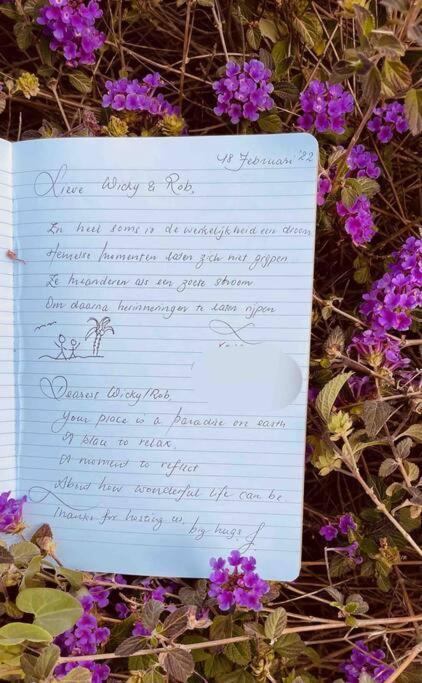 18 Februari '22
Lieve Wicky & Rob,
En heel soms is de werkelijkheid een droom
Hemelse momenten laten zich niet grijpen
Ze meanderen als een zoete stroom
Om daarna herinneringen te laten rijpen
Dearest Wicky/Rob,
Your place is a paradise on earth
A place to relax,
A moment to reflect
About how wonderful life can be
Thanks for hosting us, big hugs